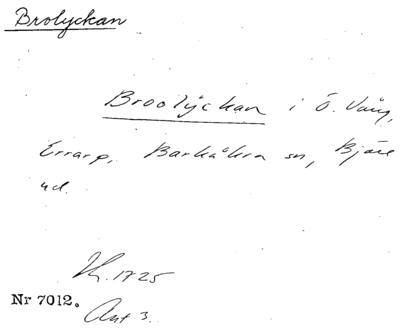 Brolyckan
Broolyckan i Ö. Vång,
Errarp, Barkåkra sn, Bjäre
hd.
1725
Nr 7012.
Akt 3.